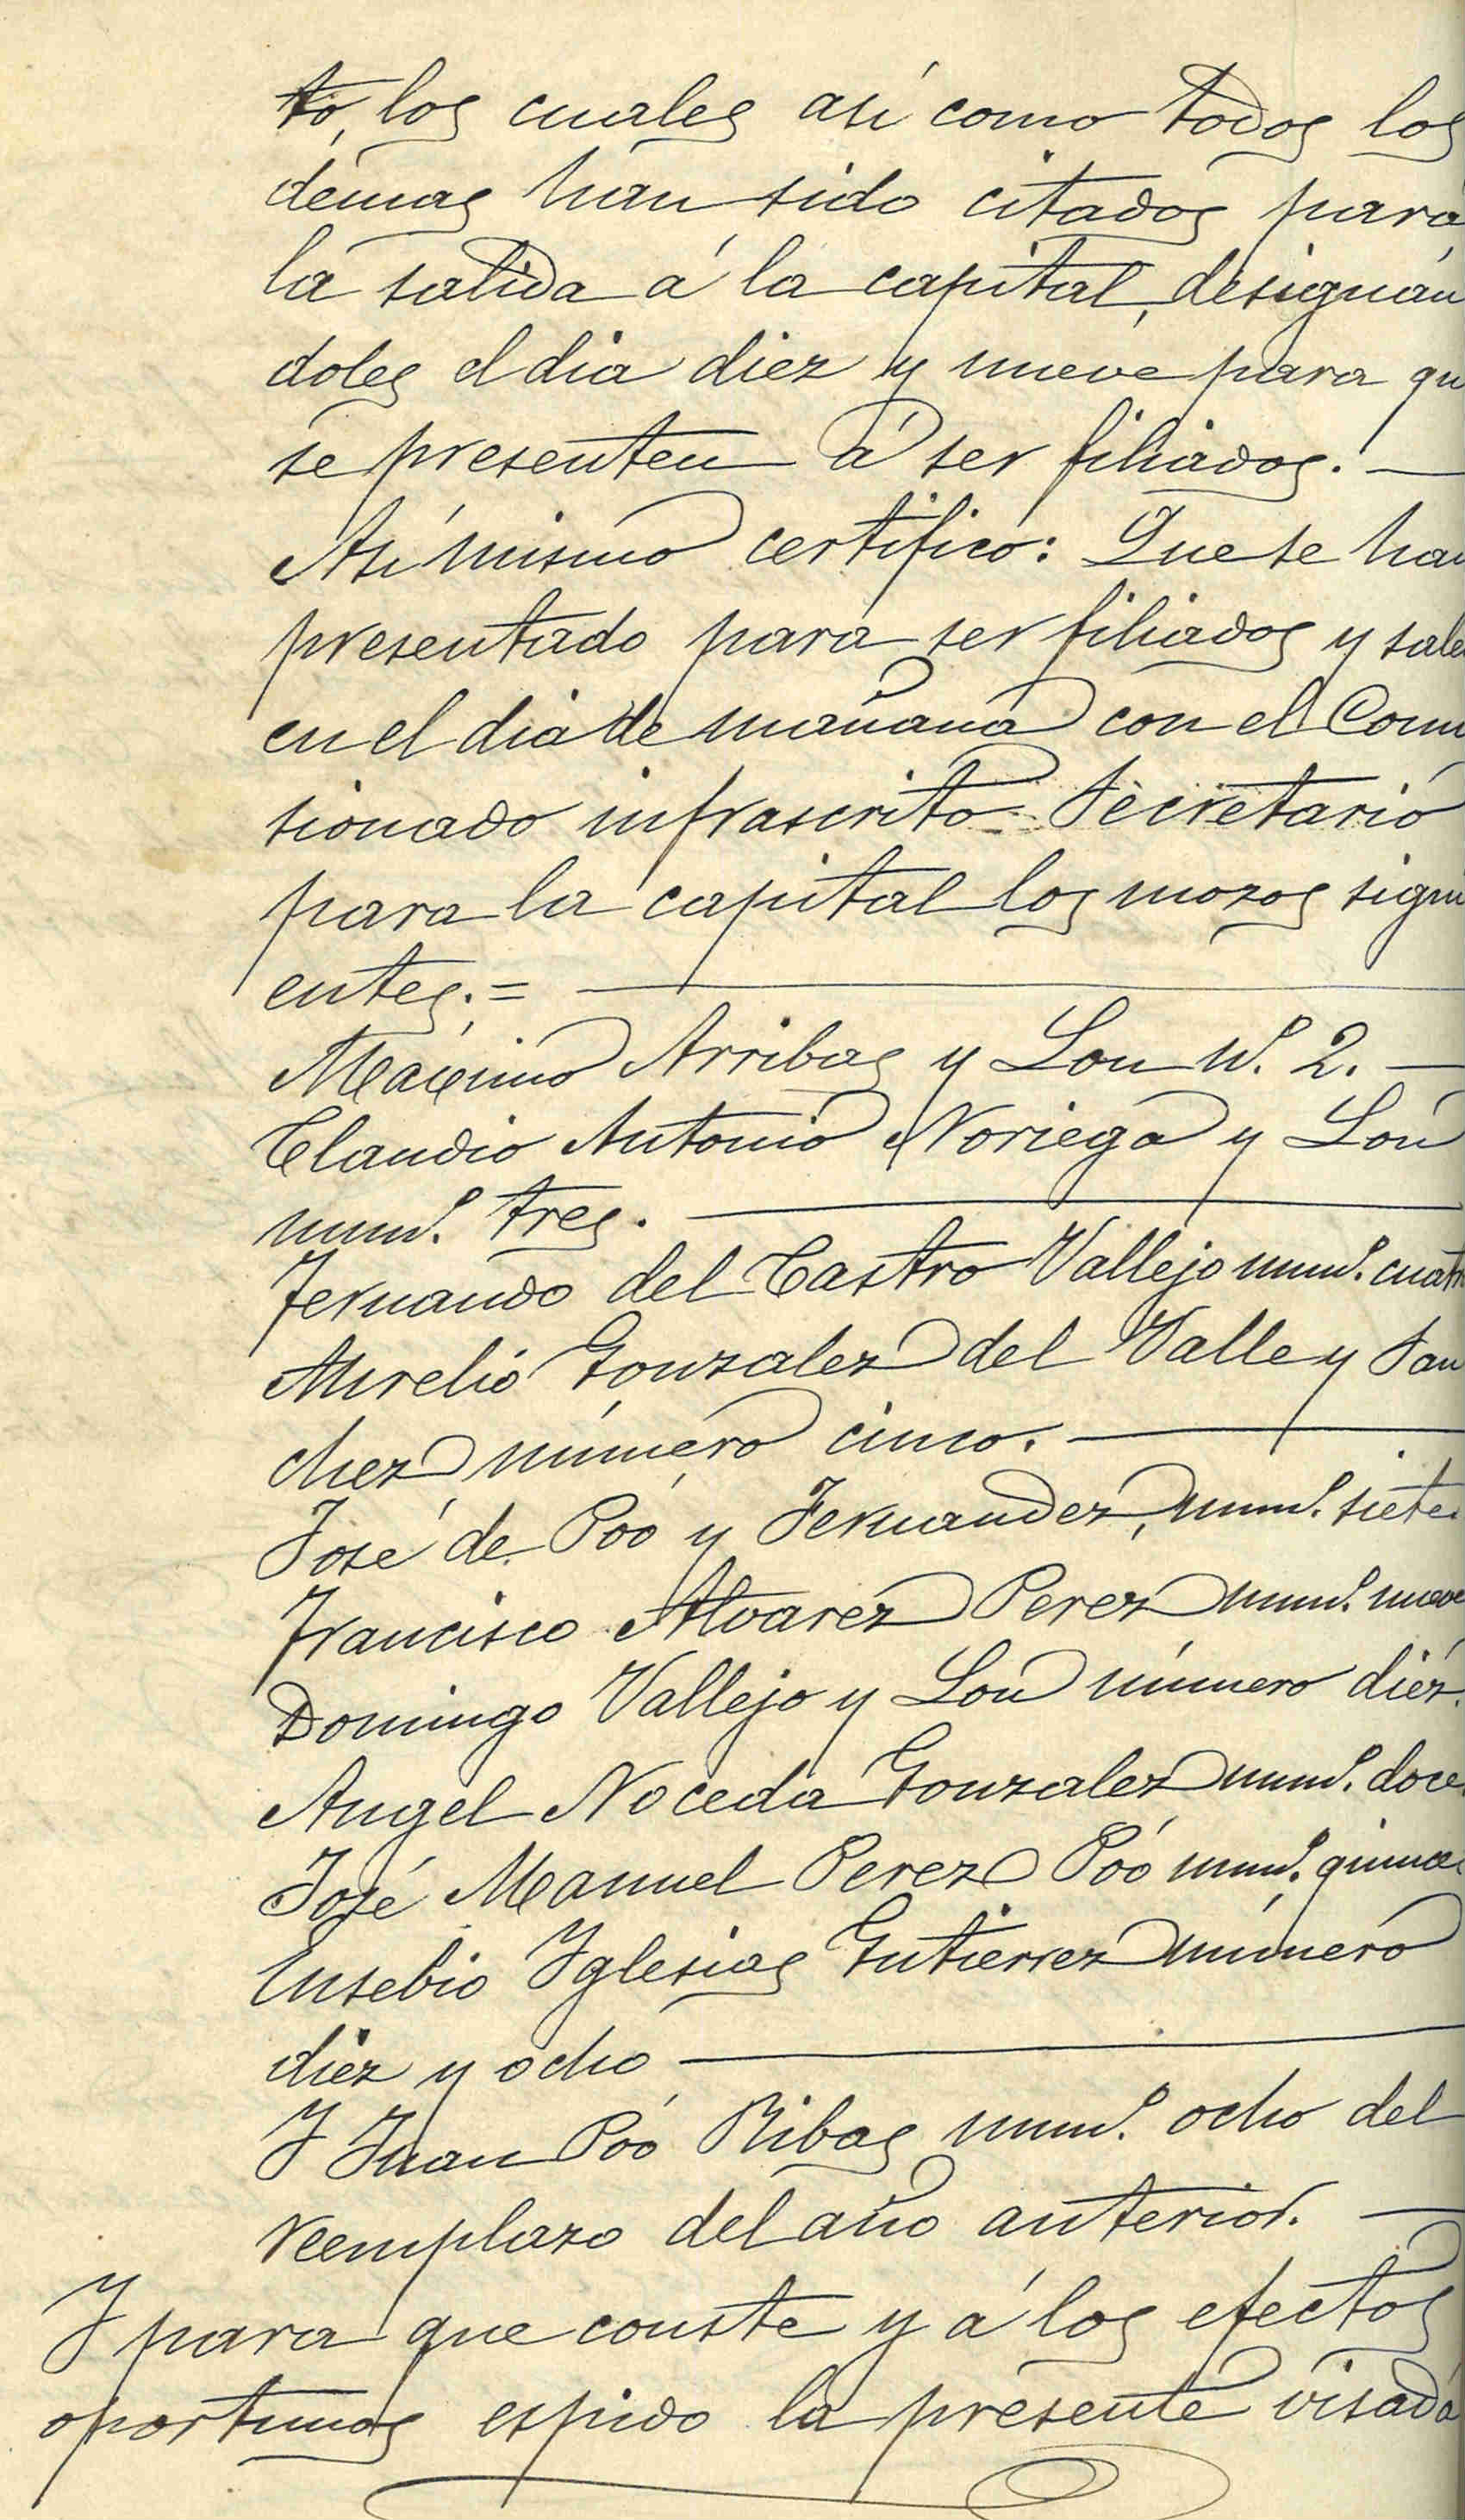 to, los cuales así como todos los
demas han sido citados para
la salida á la capital, designán
doles el dia diez y nueve para qu
se presenten á ser filiados. —
Así mismo certifico: Que se han
presentado para ser filiados y salen
en el dia de mañana con el Comi
sionado infrascrito Secretario
para la capital los mozos sigui
entes. = —
Máximo Arribas y Lon N.º 2. —
Claudio Antonio Noriega y Lon
num.º tres. —
Fernando del Castro Vallejo num.º cuatro
Aurelio Gonzalez del Valle y San
chez número cinco. —
José de Poó y Fernandez, num.º siete
Francisco Alvarez Perez num.º nueve
Domingo Vallejo y Lon número diez.
Angel Noceda Gonzalez num.º doce.
José Manuel Perez Poó num.º quince
Eusebio Iglesias Gutierrez número
diez y ocho —
Y Juan Poó Ribas num.º ocho del
reemplazo del año anterior. —
Y para que conste y á los efectos
oportunos espido la presente visada